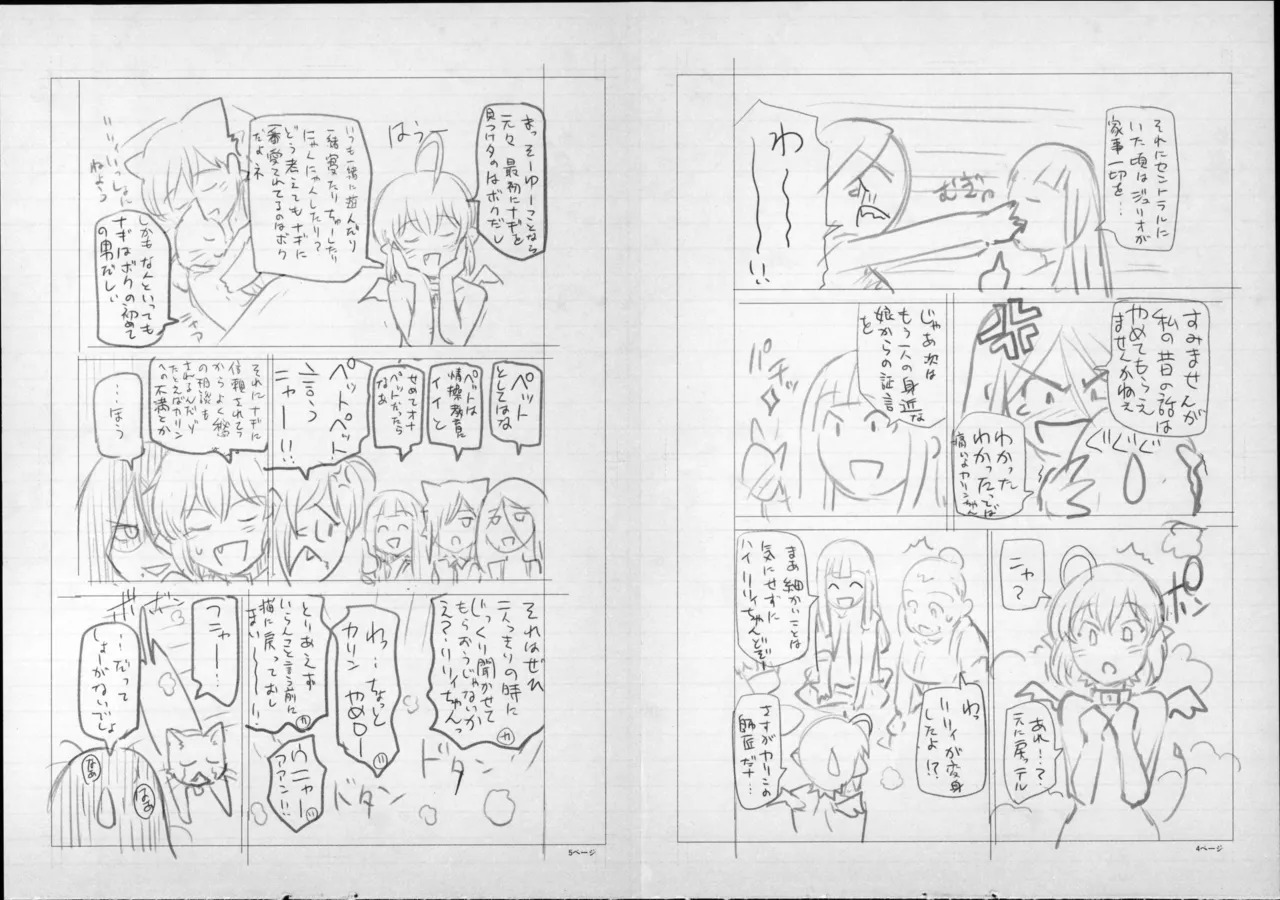 それにセントラルに
いた頃はジュリオが
家事一切を…
むぎゅ
わ～～～!!
すみませんが
私の昔の話は
やめてもらえ
ませんかねぇ
ぐぐぐ
わかった
わかったってば
痛いよカリンちゃん
じゃあ次は
もう一人の身近な
娘からの証言
を
パチッ
ポン
ニャ?
あれ…?
元に戻ッテル
わっ
リリィが変身
したよ!?
まあ細かいことは
気にせずに
ハイリリィちゃんどぞー
さすがカリンの
師匠だナ…
4ページ
まっそーゆーことなら
元々最初にナギを
見つけタのはボクだし
はうー
いつも一緒に遊んだり
一緒寝たりちゅーしたり
にゃんにゃんしたり?
どう考えてもナギに
一番愛されてるのはボク
だよネ
いっしょに
ねよう
しかもなんといっても
ナギはボクの初めて
の男だしぃ
ペット
としてはな
ペットは
情操教育に
イイと
せめてオナ
ペットだったら
なぁ
ペットペット
言う
ニャー!!
それにナギに
信頼されてっ
からよく愁
の相談も
されるんだゾ
たとえばカリン
への不満とか
…ほう
それはぜひ
二人っきりの時に
じっくり聞かせて
もらおうじゃないか
え?リリィちゃんっ
わっ…ちょっと
カリン
やめロー
ドタン
ドタン
とりあえず
いらんこと言う前に
猫に戻っておし
まい～～!!
ウニャー
アアァン!!
フニャー…
…だって
しょーがないでしょ
なぁ
はぁ
5ページ